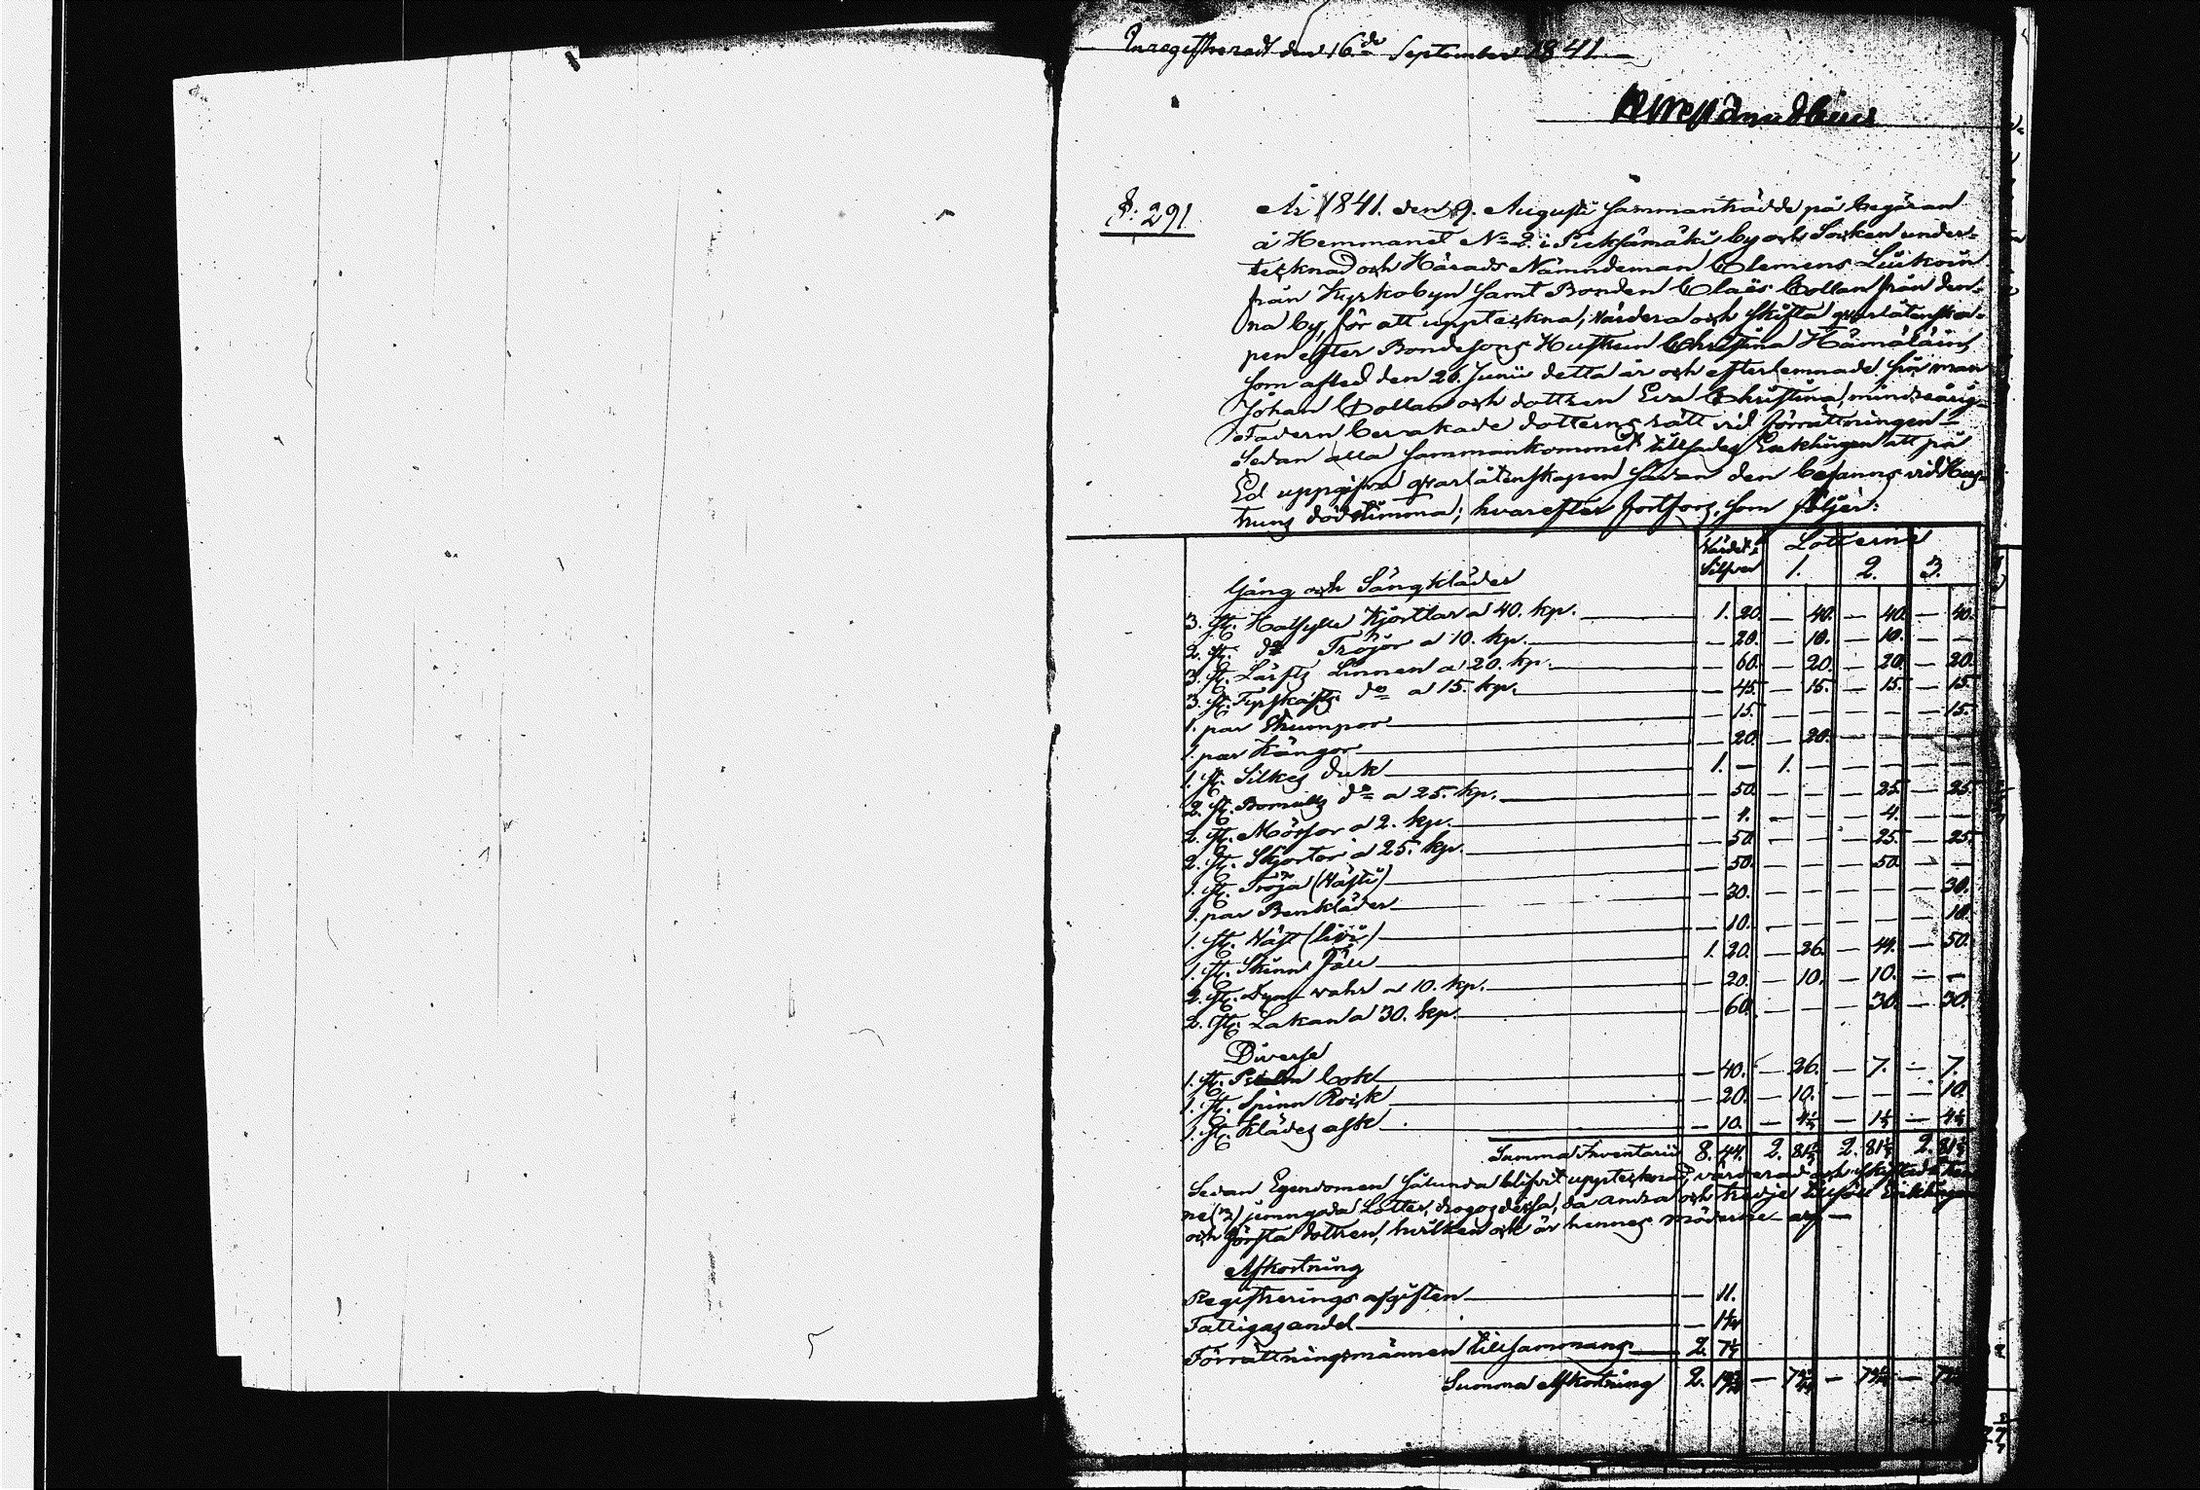 Inregistreradt den 16de September 1841.
§. 291
År 1841. den 9. Augusti sammanträdde på begäran
å Hemmanet No 2. i Pieksämäki by och Socken under-
tecknad och Härads Nämndeman Clemens
från Kyrkobyn samt Bonden Claës Collan från den-
na by, för att uppteckna, värdera och skifta qvarlåtenska-
pen efter Bondesons Hustrun Christina Hämäläin,
som afled den 26. Junii detta år och efterlemnade sin man
Johan Collan och dottren Eva Christina, mindreårig.
Fadern bevakade dotterns rätt vid förrättningen.
Sedan alla sammankommit tillsades Enklingen att på
Ed uppgifva qvarlåtenskapen sådan den befanns vid Hus-
truns dödstimma; hvarefter fortfors, som följer:
Värdet i Silfver Lotterne
1. 2. 3.
Gång och Sängkläder
3. st. Halfylle Kjortlar a 40. kp. 1. 20. — 40. — 40. — 40.
2. st. do Tröjor a 10. kp. — 20. — 10. — 10. — —
3. st. Lärfts Linnen a 20. kp. — 60. — 20. — 20. — 20.
3. st. do a 15. kp. — 45. — 15. — 15. — 15.
1. par Strumpor — 15. — — — — — 15.
1. par Kängor — 20. — 20. — — — —
1. st. Silkes duk 1. — 1. — — — — —
2. st. Bomulls do a 25. kp. — 50. — — — 25. — 25.
2. st. Mössor a 2. kp. — 4. — — — 4. — —
2. st. Skjortor a 25. kp. — 50. — — — 25. — 25.
1. st. Tröja — 50. — — — 50. — —
1. par Benkläder — 30. — — — — — 30.
1. st. Väst (livi) — 10. — — — — — 10.
1. st. Skinn Fäll 1. 20. — 26. — 44. — 50.
2. st. Dyn vahr a 10. kp. — 20. — 10. — 10. — —
2. st. Lakan a 30. kp. — 60. — — — 30. — 30.
Diverse
1. st. Psalm bok — 40. — 26. — 7. — 7.
1. st. Spinn Rock — 20. — 10. — — — 10.
1. st. Klädes ask — 10.
Summa Inventarii 8. 44. 2. 81⅓ 2. 81⅓ 2. 81⅓
Sedan Egendomen sålunda blifvit upptecknad, värderad och skiftad i tren-
ne (3) jemngoda Lotter, drogos dessa, da andra och tredje tillföll Enklingen
och första dottren, hvilken ock är hennes möderne arf —
Afkortning
Registrerings afgiften — 11.
Fattigas andel
Förrättningsmännen tillsammans 2.
Summa Afkortning 2.